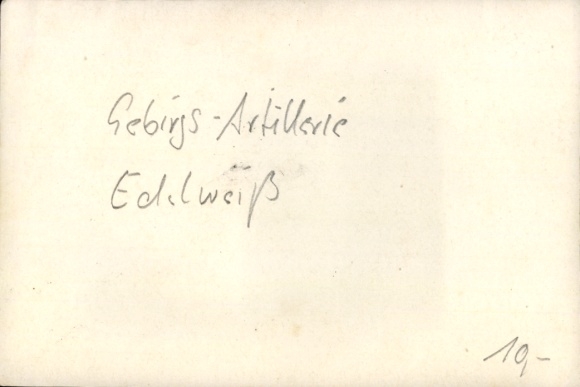 Gebirgs-Artillerie
Edelweiß
19,-